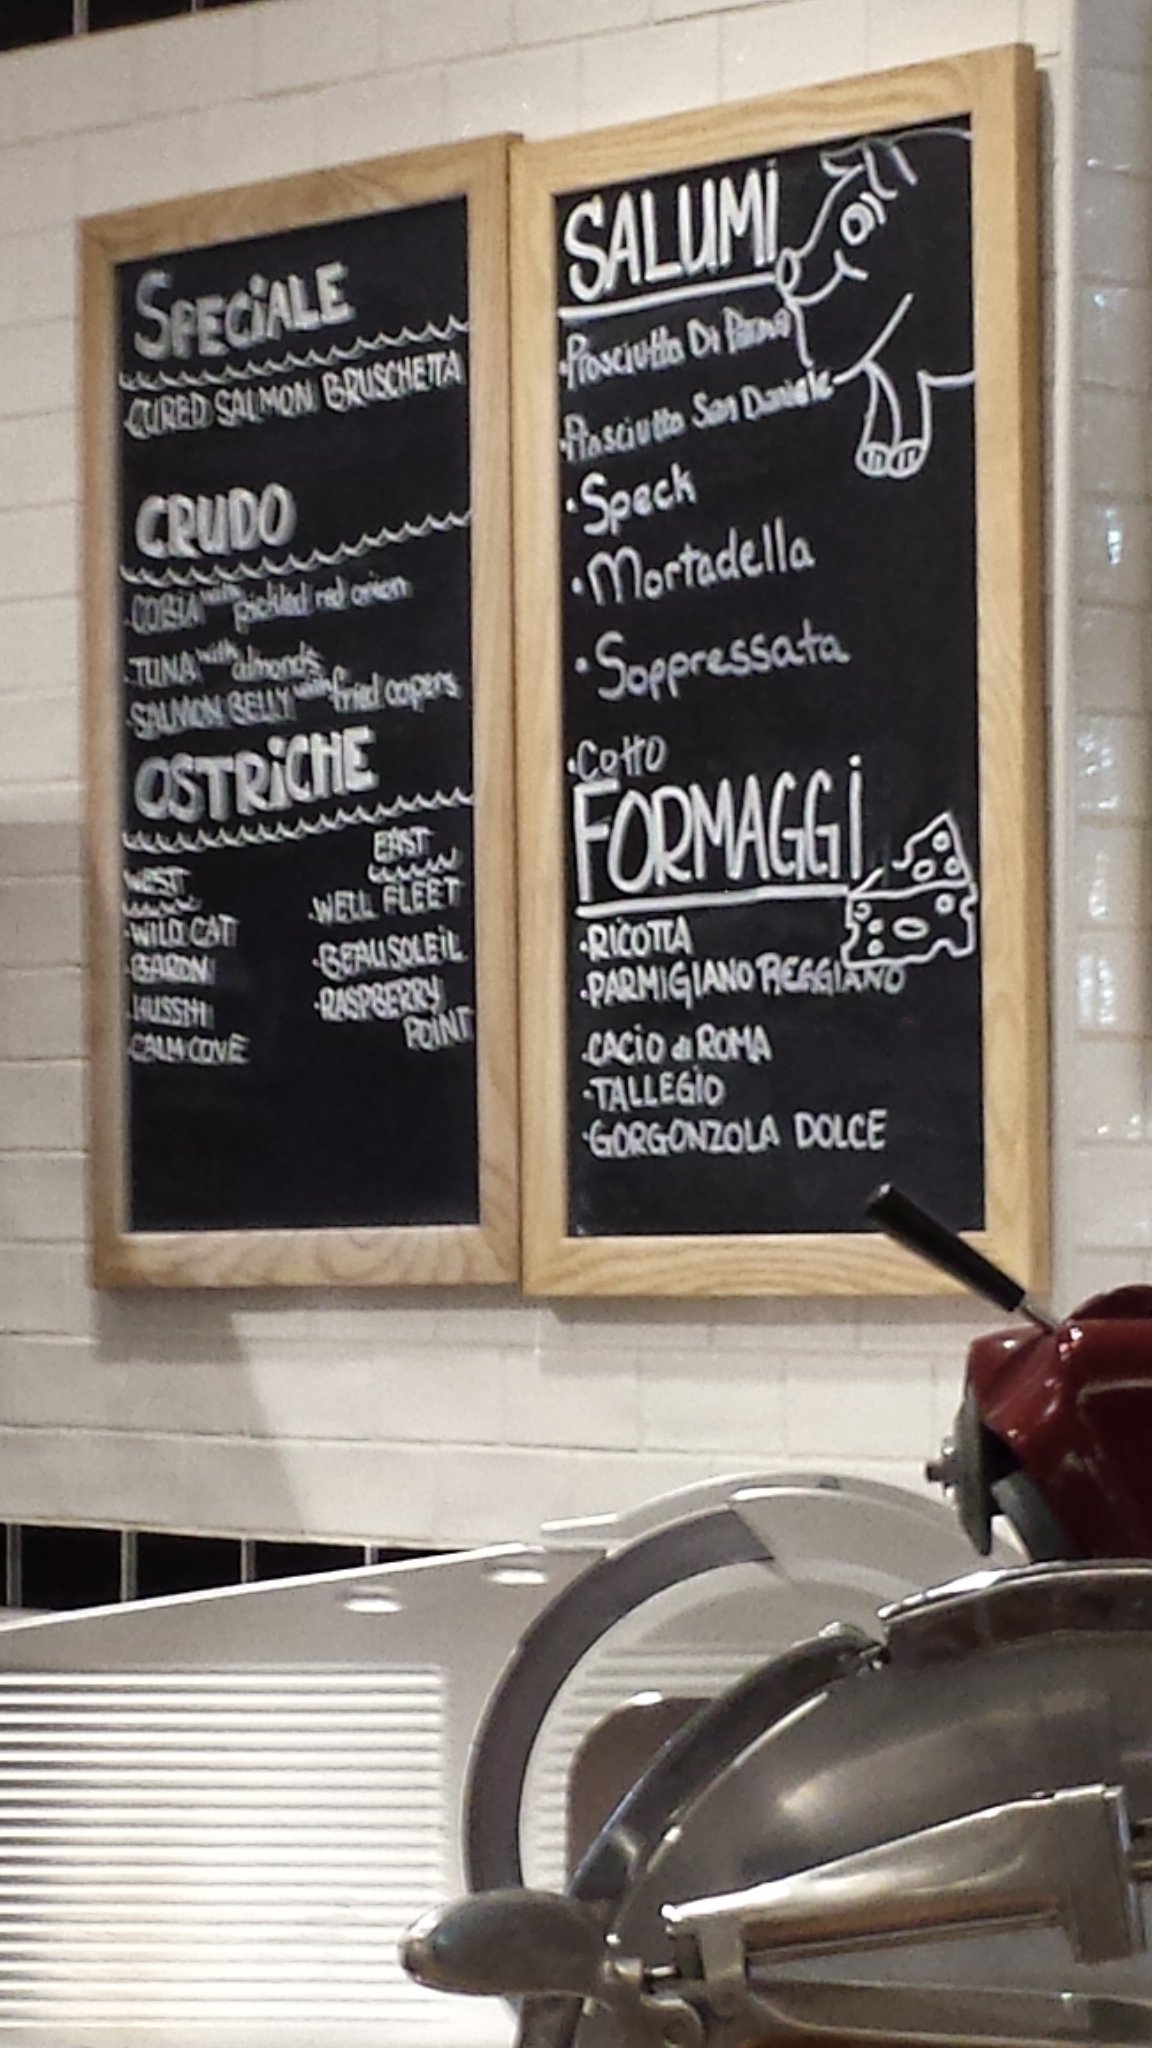 SPECiALE
·CURED SALMON BRUSCHETTA
CRUDO
·COBIA with pickled red onion
·TUNA with almonds
·SALMON BELLY with fried capers
OSTRiCHE
WEST
·WILD CAT
·BARON
·KUSSHI
·CALM COVE
EAST
·WELL FLEET
·BEAUSOLEiL
·RASPBERRY
POINT
SALUMi
·Prosciutto Di Parma
·Prosciutto San Daniele
·Speck
·Mortadella
·Soppressata
·Cotto
FORMAGGi
·RiCOTTA
·PARMiGiANO REGGiANO
·CACiO di ROMA
·TALLEGiO
·GORGONZOLA DOLCE